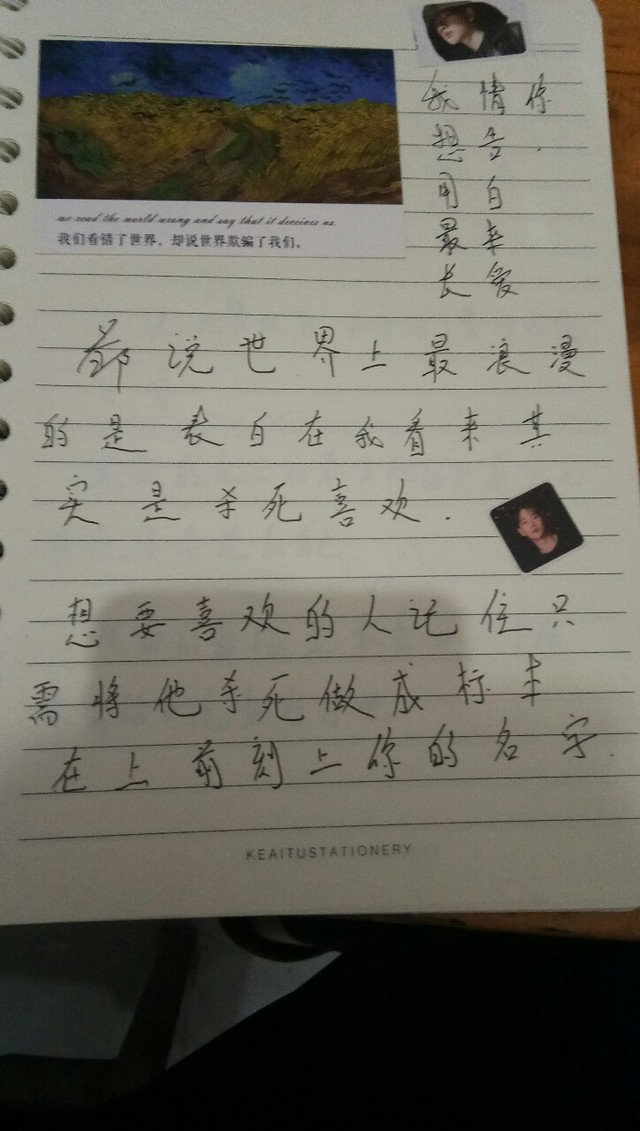 we read the world wrong and say that it deceives us.
我们看错了世界，却说世界欺骗了我们。
我情你
想告.
用白
最来
长爱
都说世界上最浪漫
的是表白在我看来其
实是杀死喜欢.
想要喜欢的人记住只
需将他杀死做成标本
在上前刻上你的名字.
KEAITUSTATIONERY